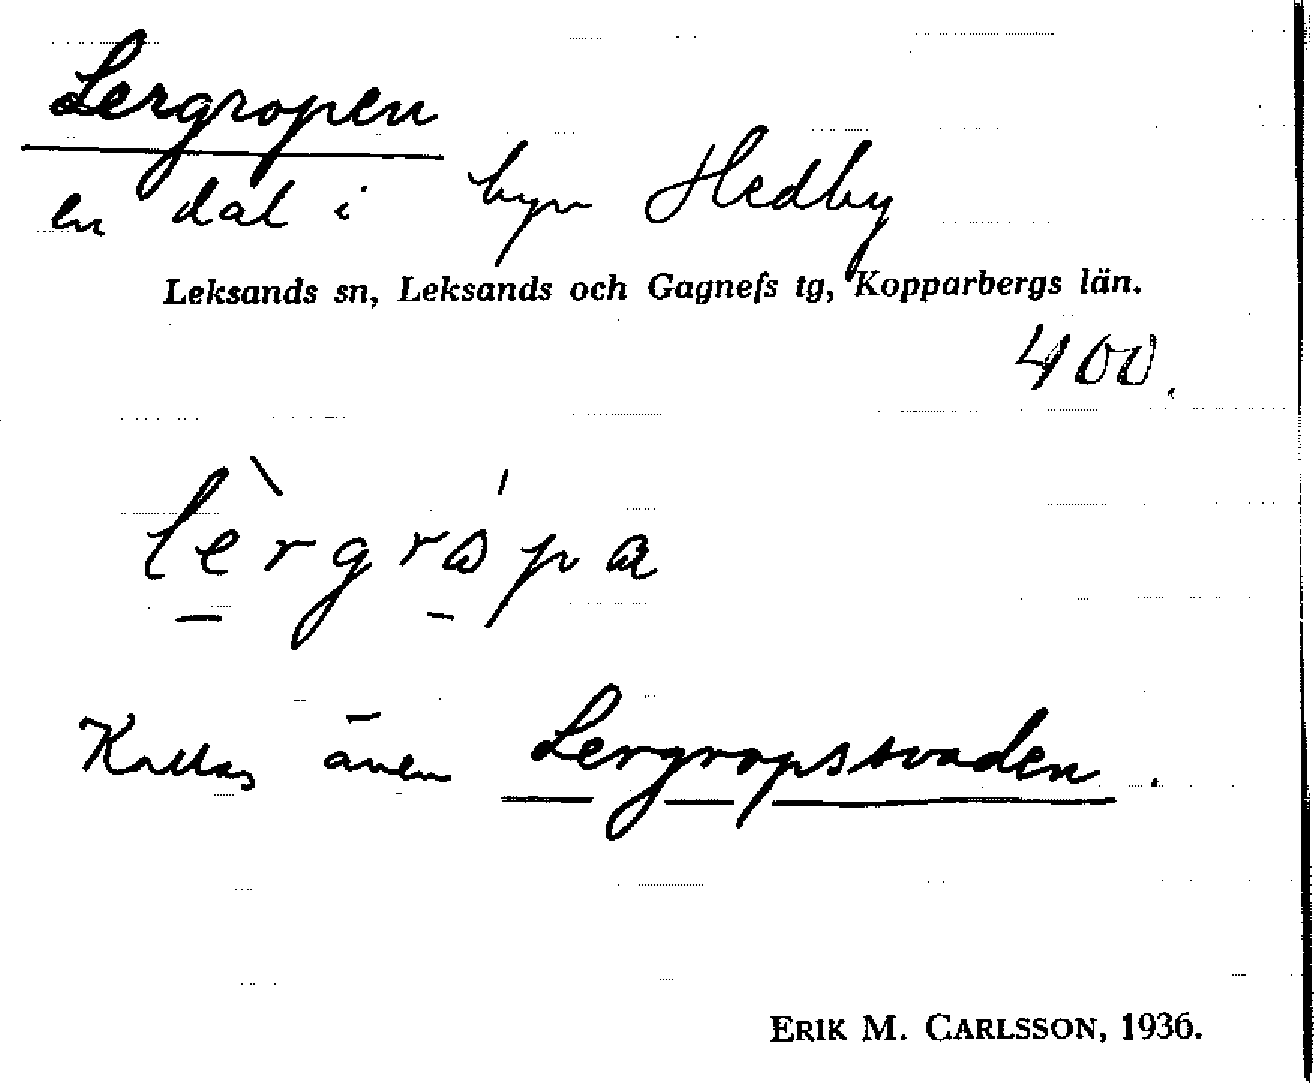 Lergropen
en dal i byn Hedby
Leksands sn, Leksands och Gagnefs tg, Kopparbergs län.
400.
lèrgrápa
Kallas även Lergropssvaden.
ERIK M. CARLSSON, 1936.